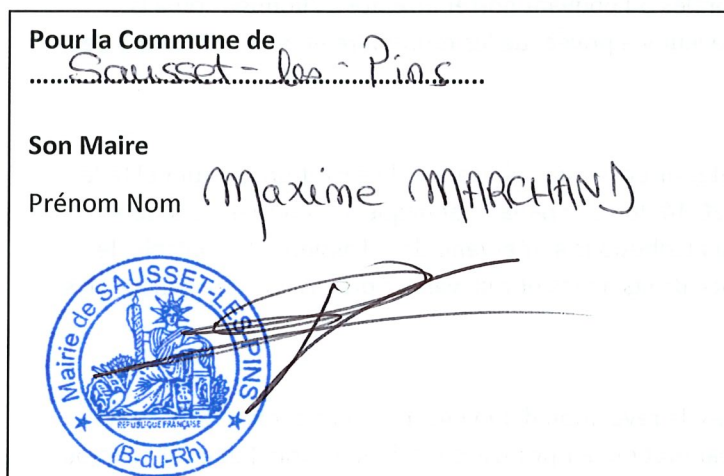 Pour la Commune de
Sausset-les-Pins
Son Maire
Prénom Nom Maxime MARCHAND
Mairie de SAUSSET-LES-PINS
REPUBLIQUE FRANÇAISE
(B-du-Rh)